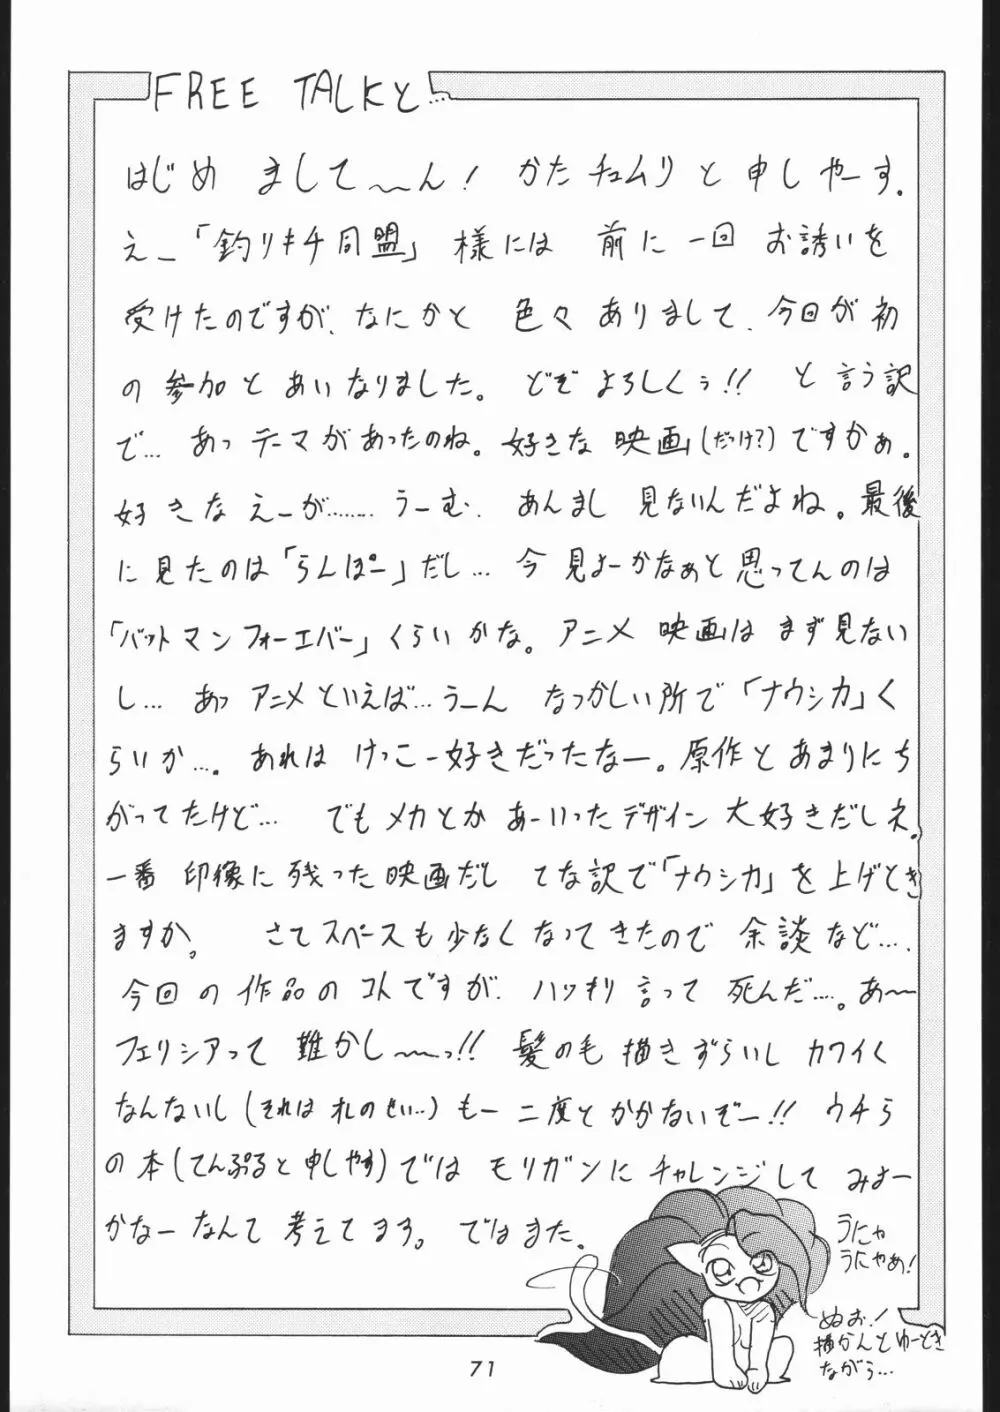 FREE TALKと…
はじめ ましてーーん！ かたチュムリ と 申しやーす．
え－「釣りキチ同盟」様には 前に 一回 お誘いを
受けたのですが、なにかと 色々 ありまして、今回が 初
の 参加 と あいなりました。 どぞ よろしくぅ!! と 言う訳
で… あっ テーマがあったのね。好きな 映画(だっけ?)ですかぁ。
好きな えーが……… うーむ． あんまし 見ないんだよね。最後
に 見たのは「らんぽー」だし… 今 見よーかなぁと思ってんのは
「バットマンフォーエバー」くらいかな。アニメ 映画は まず見ない
し… あっ アニメといえば…うーん なつかしい所で「ナウシカ」く
らいか…. あれは けっこー好きだったなー。原作と あまりにち
がってたけど… でもメカとか あーいったデザイン 大好きだしネ。
一番 印像に 残った 映画だし てな訳で「ナウシカ」を上げとき
ますか。 さてスペースも少なくなってきたので 余談など…．
今回の 作品の コトですが、ハッキリ言って 死んだ…。あ～
フェリシアって 難かし～～っ!! 髪の毛 描きずらいし カワイく
なんないし(それは オレのせい…)もー 二度とかかないぞー!! ウチら
の本(てんぷると申しやす)では モリガンに チャレンジして みよー
かなーなんて 考えてます。ではまた。
うにゃ
うにゃあ！
ぬお！
描かんとゆーとき
ながら…
71